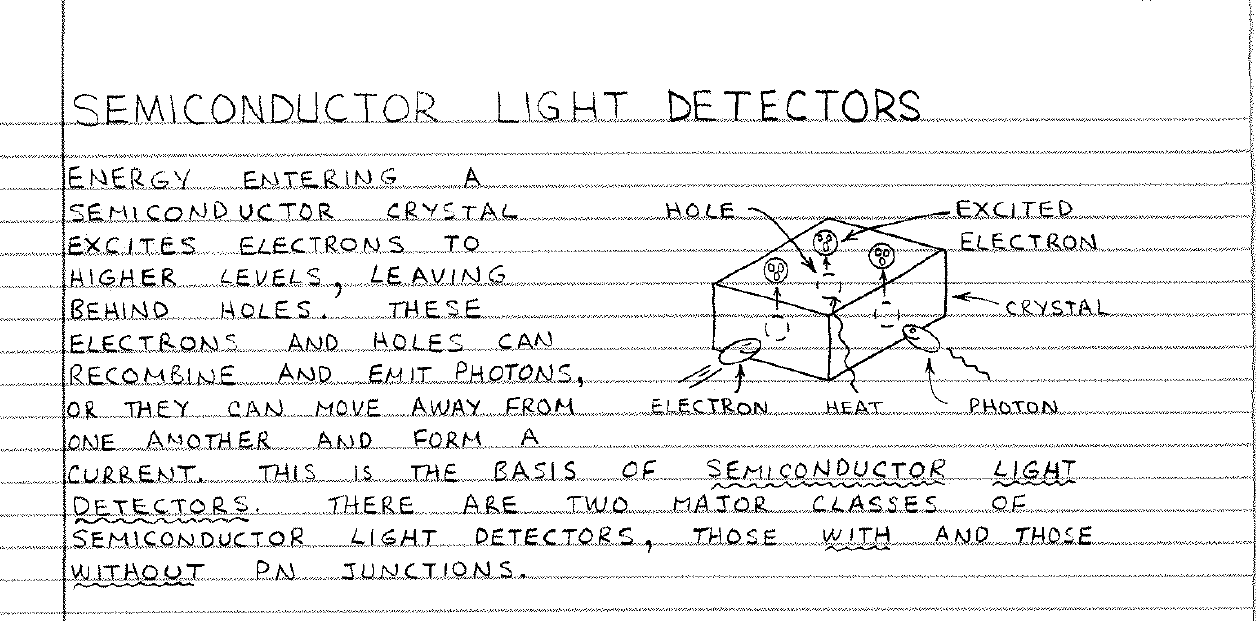 SEMICONDUCTOR LIGHT DETECTORS
ENERGY ENTERING A
SEMICONDUCTOR CRYSTAL
EXCITES ELECTRONS TO
HIGHER LEVELS, LEAVING
BEHIND HOLES. THESE
ELECTRONS AND HOLES CAN
RECOMBINE AND EMIT PHOTONS,
OR THEY CAN MOVE AWAY FROM
ONE ANOTHER AND FORM A
CURRENT. THIS IS THE BASIS OF SEMICONDUCTOR LIGHT
DETECTORS. THERE ARE TWO MAJOR CLASSES OF
SEMICONDUCTOR LIGHT DETECTORS, THOSE WITH AND THOSE
WITHOUT PN JUNCTIONS.
HOLE
EXCITED
ELECTRON
CRYSTAL
ELECTRON
HEAT
PHOTON